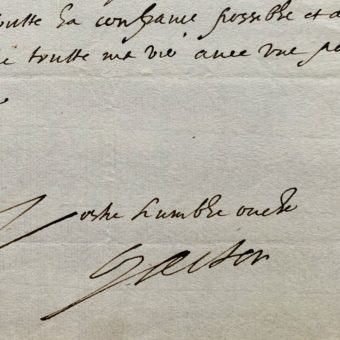 toutte la confiance possible et a
e toutte ma vie avec une pa
Vostre humble oncle
Gaston